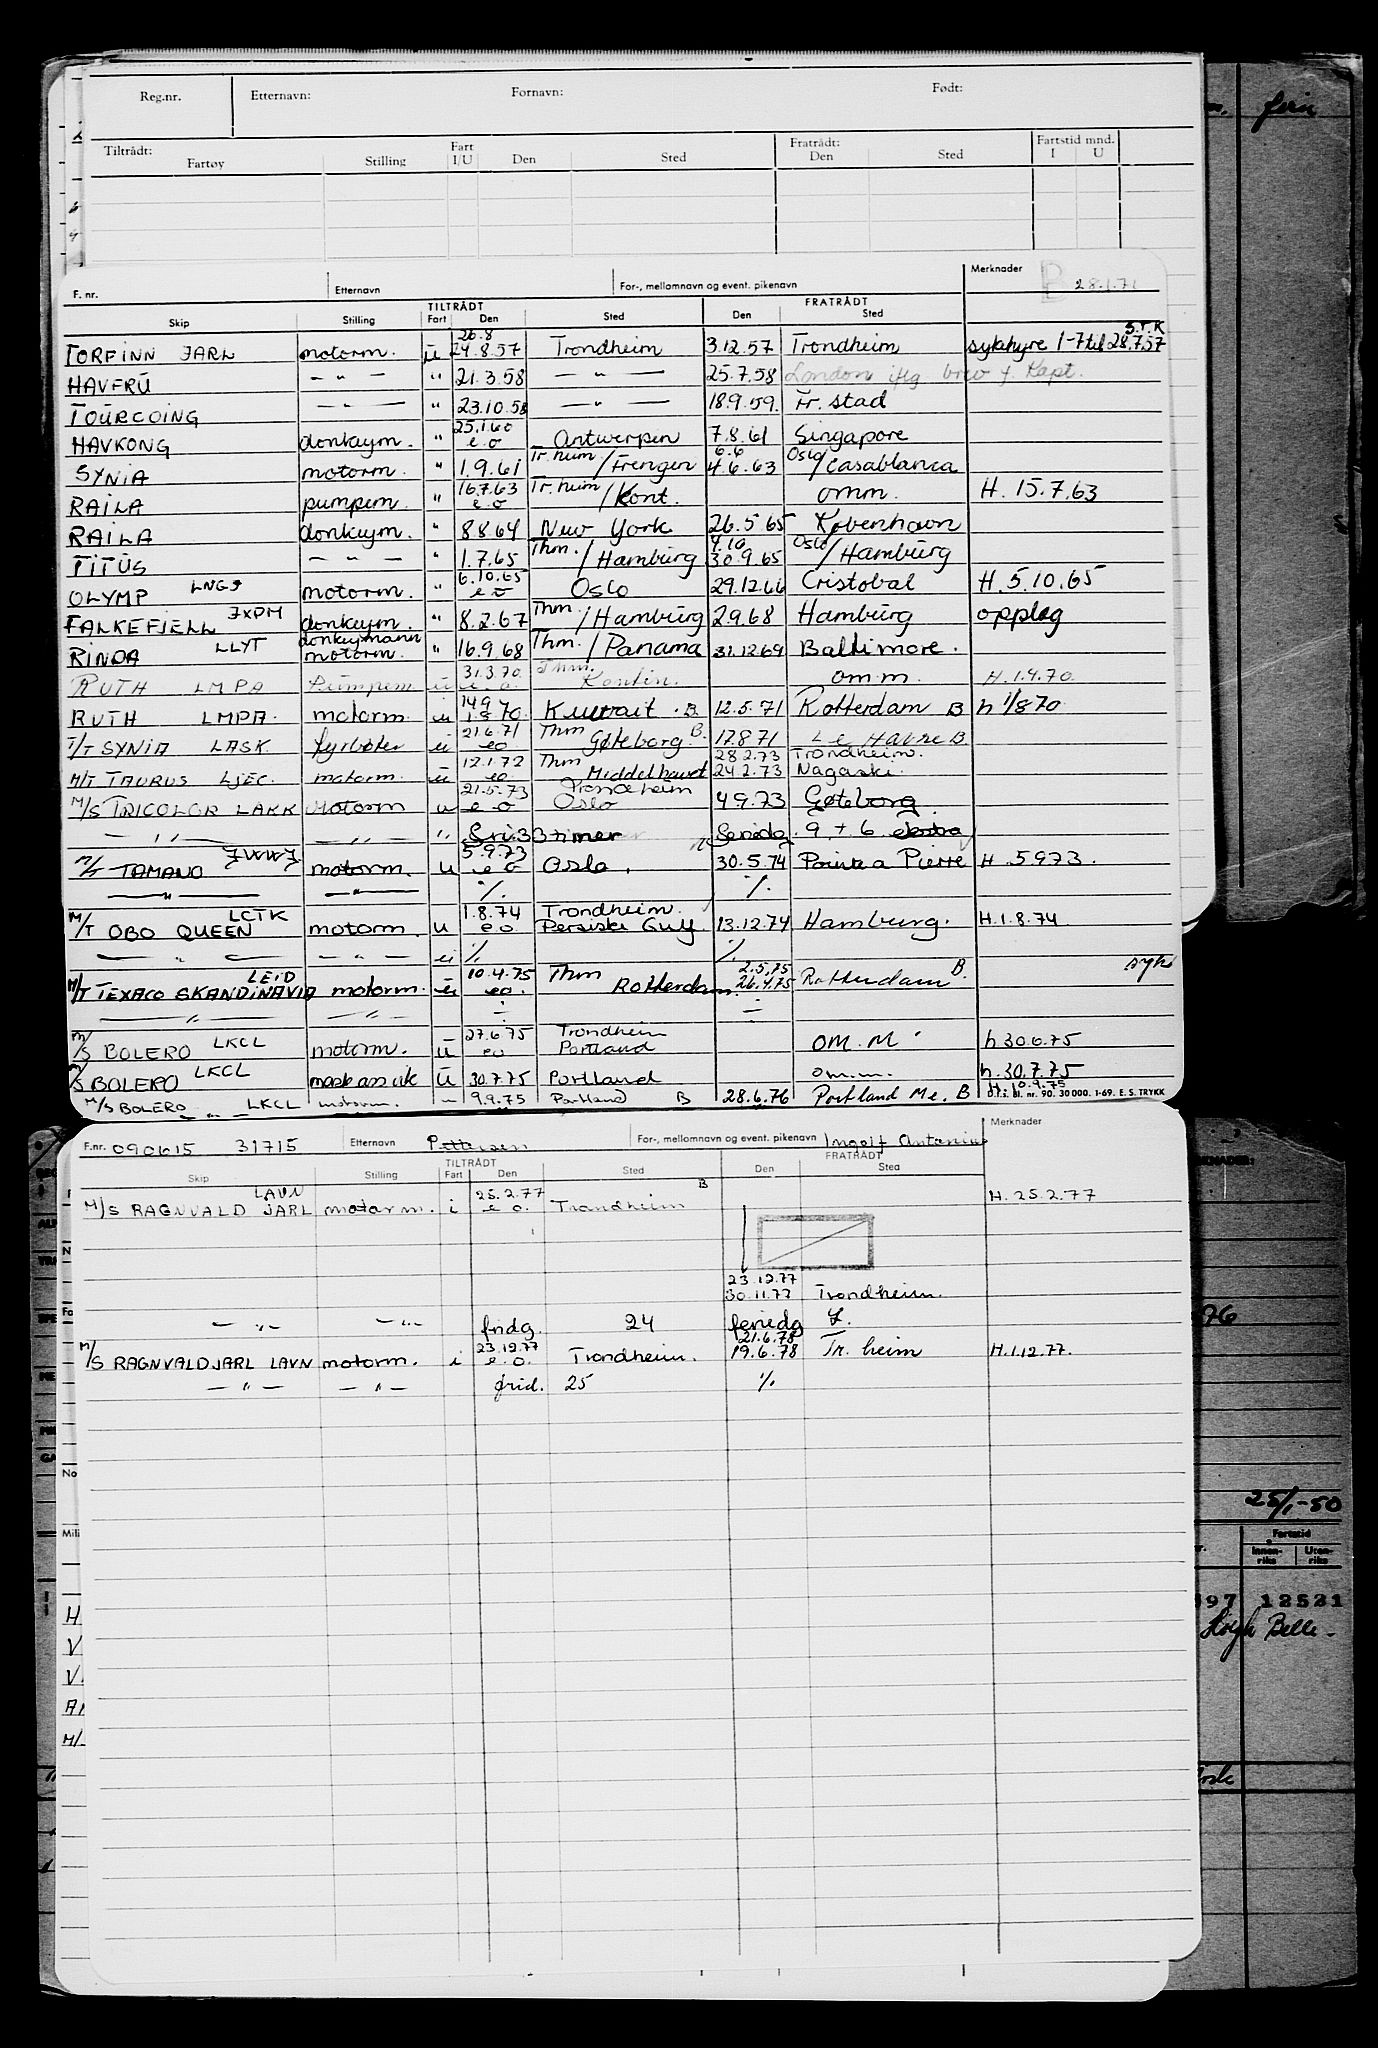 Reg.nr. Etternavn: Fornavn: Født:
Tiltrådt: Fart Fratrådt: Fartstid mnd.
Fartøy Stilling I/U Den Sted Den Sted I U
F. nr. Etternavn For-, mellomnavn og event. pikenavn Merknader B 28.1.71
TILTRÅDT FRATRÅDT
Skip Stilling Fart Den Sted Den Sted
26.8 S.T.K
TORFINN JARL motorm. u 24.8.57 Trondheim 3.12.57 Trondheim sykehyre 1-7 til 28.7.57
HAVFRU — " — " 21.3.58 — " — 25.7.58 London iflg brev f. Kapt.
TOURCOING — " — " 23.10.58 — " — 18.9.59. Fr. stad
25.1.60
HAVKONG donkeym. " e.o Antwerpen 7.8.61 Singapore
Tr.heim 6.6 Oslo
SYNIA motorm. " 1.9.61 /Frengen 4.6.63 /Casablanca
16.7.63 Tr.heim
RAILA pumpem. " e.o /Kont. omm. H. 15.7.63
RAILA donkeym. " 8.8.64 New York 26.5.65 København
Thm. 4.10 Oslo
TITUS — " — " 1.7.65 /Hamburg 30.9.65 /Hamburg
6.10.65
OLYMP LNGJ motorm. " e.o Oslo 29.12.66 Cristobal H. 5.10.65
FALKEFJELL JXPM donkeym. " 8.2.67 Thm. /Hamburg 2.9.68 Hamburg opplag
donkeymann
RINDA LLYT motorm. " 16.9.68 Thm. /Panama 31.12.69 Baltimore.
31.3.70 Thm.
RUTH LMPA Pumpem u e.o. Kontin. omm. H.1.4.70
14.9
RUTH LMPA motorm. u 1.8.70 Kuwait. B 12.5.71 Rotterdam B h 1/8 70
21.6.71 Thm
T/T SYNIA LASK fyrbøter u eo Gøteborg B. 17.8.71 Le Havre B
12.1.72 Thm 28.2.73 Trondheim.
M/T TAURUS LJEC. motorm. u eo. Middelhavet 24.2.73 Nagaski.
21.5.73 Trondheim
M/S TRICOLOR LAKK Motorm u e o Oslo 4.9.73 Gøteborg
— " — — " — " fri: 33 timer feriedg. 9 + 6 ekstra
5.9.73
M/T TAMANO JWWJ motorm. u e o Oslo. 30.5.74 Pointe a Pierre H. 5973.
— " — — " — %. %.
1.8.74 Trondheim.
M/T OBO QUEEN LCTK motorm. u e o. Persiske Gulf. 13.12.74 Hamburg. H.1.8.74
— " — — " — u %. %.
10.4.75 Thm 2.5.75
M/T TEXACO SKANDINAVIA LEID motorm. u eo. Rotterdam. 26.4.75 Rotterdam B. syk
— " — — " — ÷ ÷
27.6.75 Trondheim
M/S BOLERO LKCL motorm. u eo Portland OM. M. h 30.6.75
M/S BOLERO LKCL mask ass vik u 30.7.75 Portland om.m. h. 30.7.75
M/S BOLERO LKCL motorm. " 9.9.75 Portland B 28.6.76 Portland Me. B H. 10.9.75
D.f.s. Bl. nr. 90. 30 000. 1-69. E. S. TRYKK
F.nr. 090615 31715 Etternavn Pettersen For-, mellomnavn og event. pikenavn Ingolf Antonius Merknader
TILTRÅDT FRATRÅDT
Skip Stilling Fart Den Sted Den Sted
25.2.77 B
M/S RAGNVALD JARL LAVN motorm. i e o. Trondheim H. 25.2.77
23.12.77
30.11.77 Trondheim.
— " — — " — fridg. 24 feriedg
23.12.77 21.6.78
M/S RAGNVALD JARL LAVN motorm. i e.o. Trondheim. 19.6.78 Tr. heim H.1.12.77.
— " — — " — frid. 25 %
25/1-50
Fartstid
Innenriks Utenriks
12521
Høegh Belle